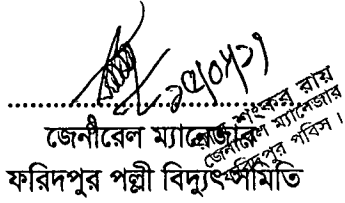 জেনারেল ম্যানেজার
ফরিদপুর পল্লী বিদ্যুৎ সমিতি
শংকর রায়
জেনারেল ম্যানেজার
ফরিদপুর পবিস।